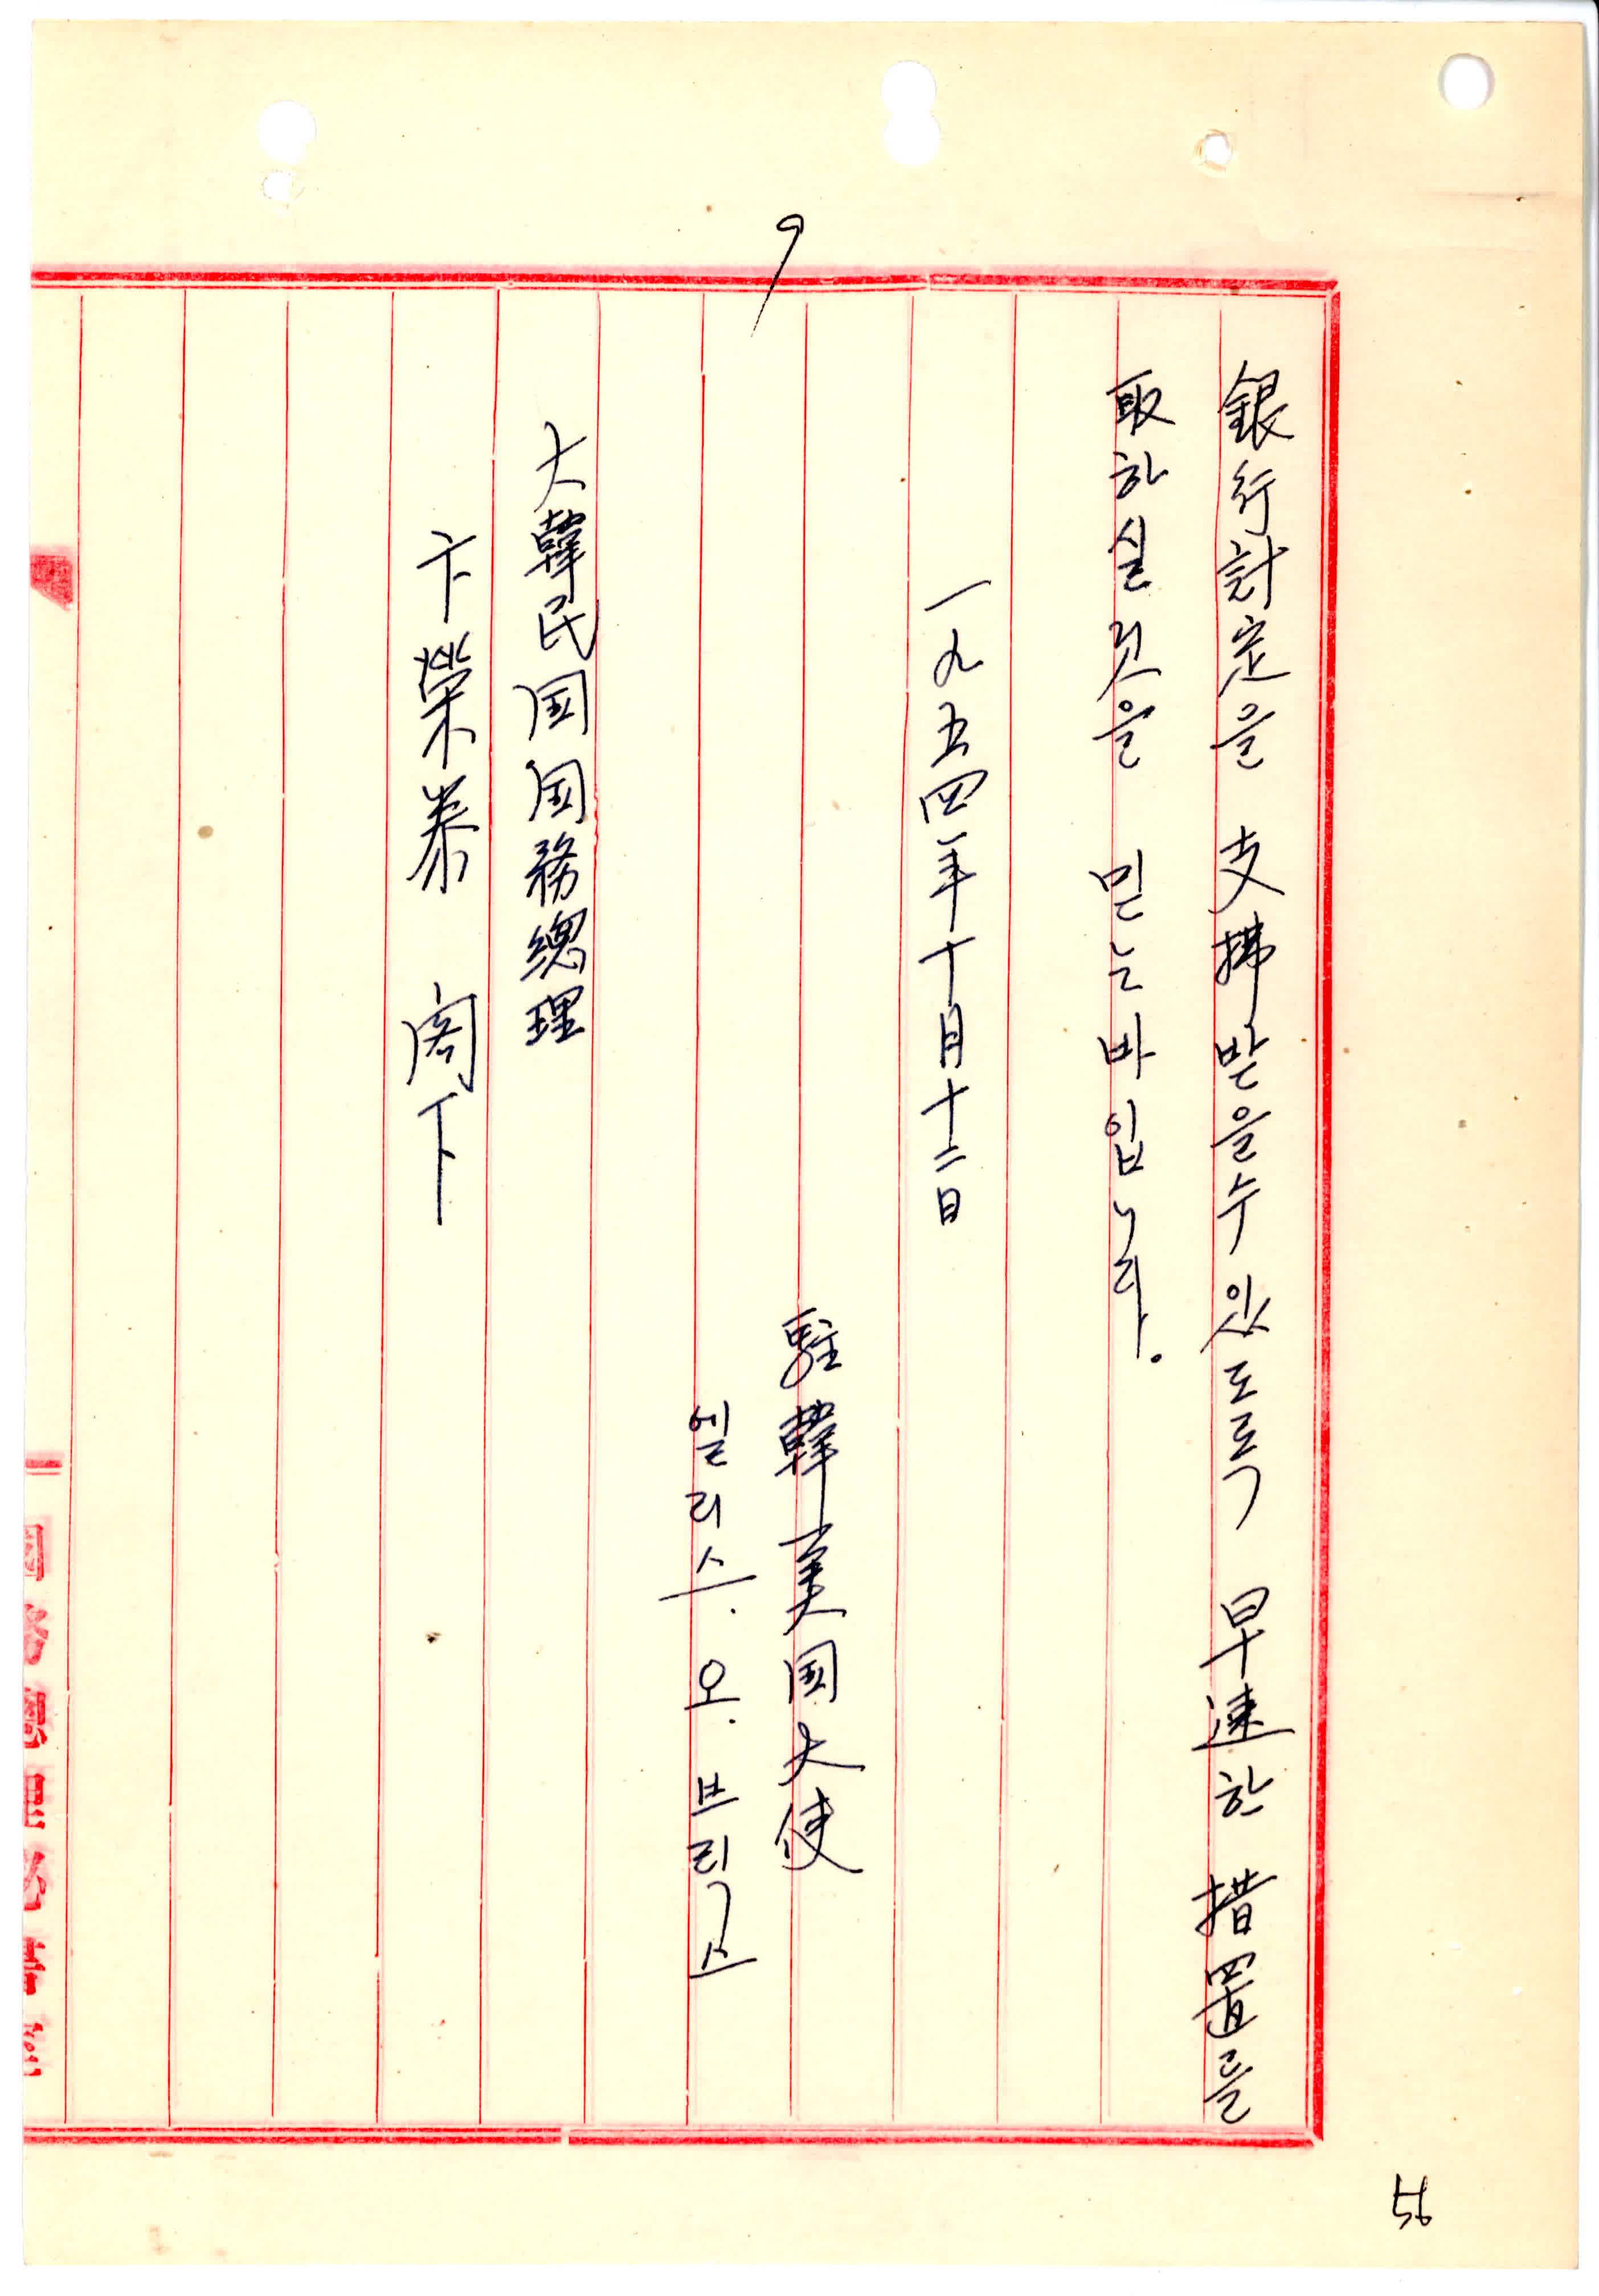 9
銀行計定을 支拂받을수 있도록 早速한 措置를
取하실것을 믿는바입니다.
一九五四年十月十二日
駐韓美国大使
엘리스. 오. 브릭스
大韓民国国務總理
卞榮泰 閣下
56